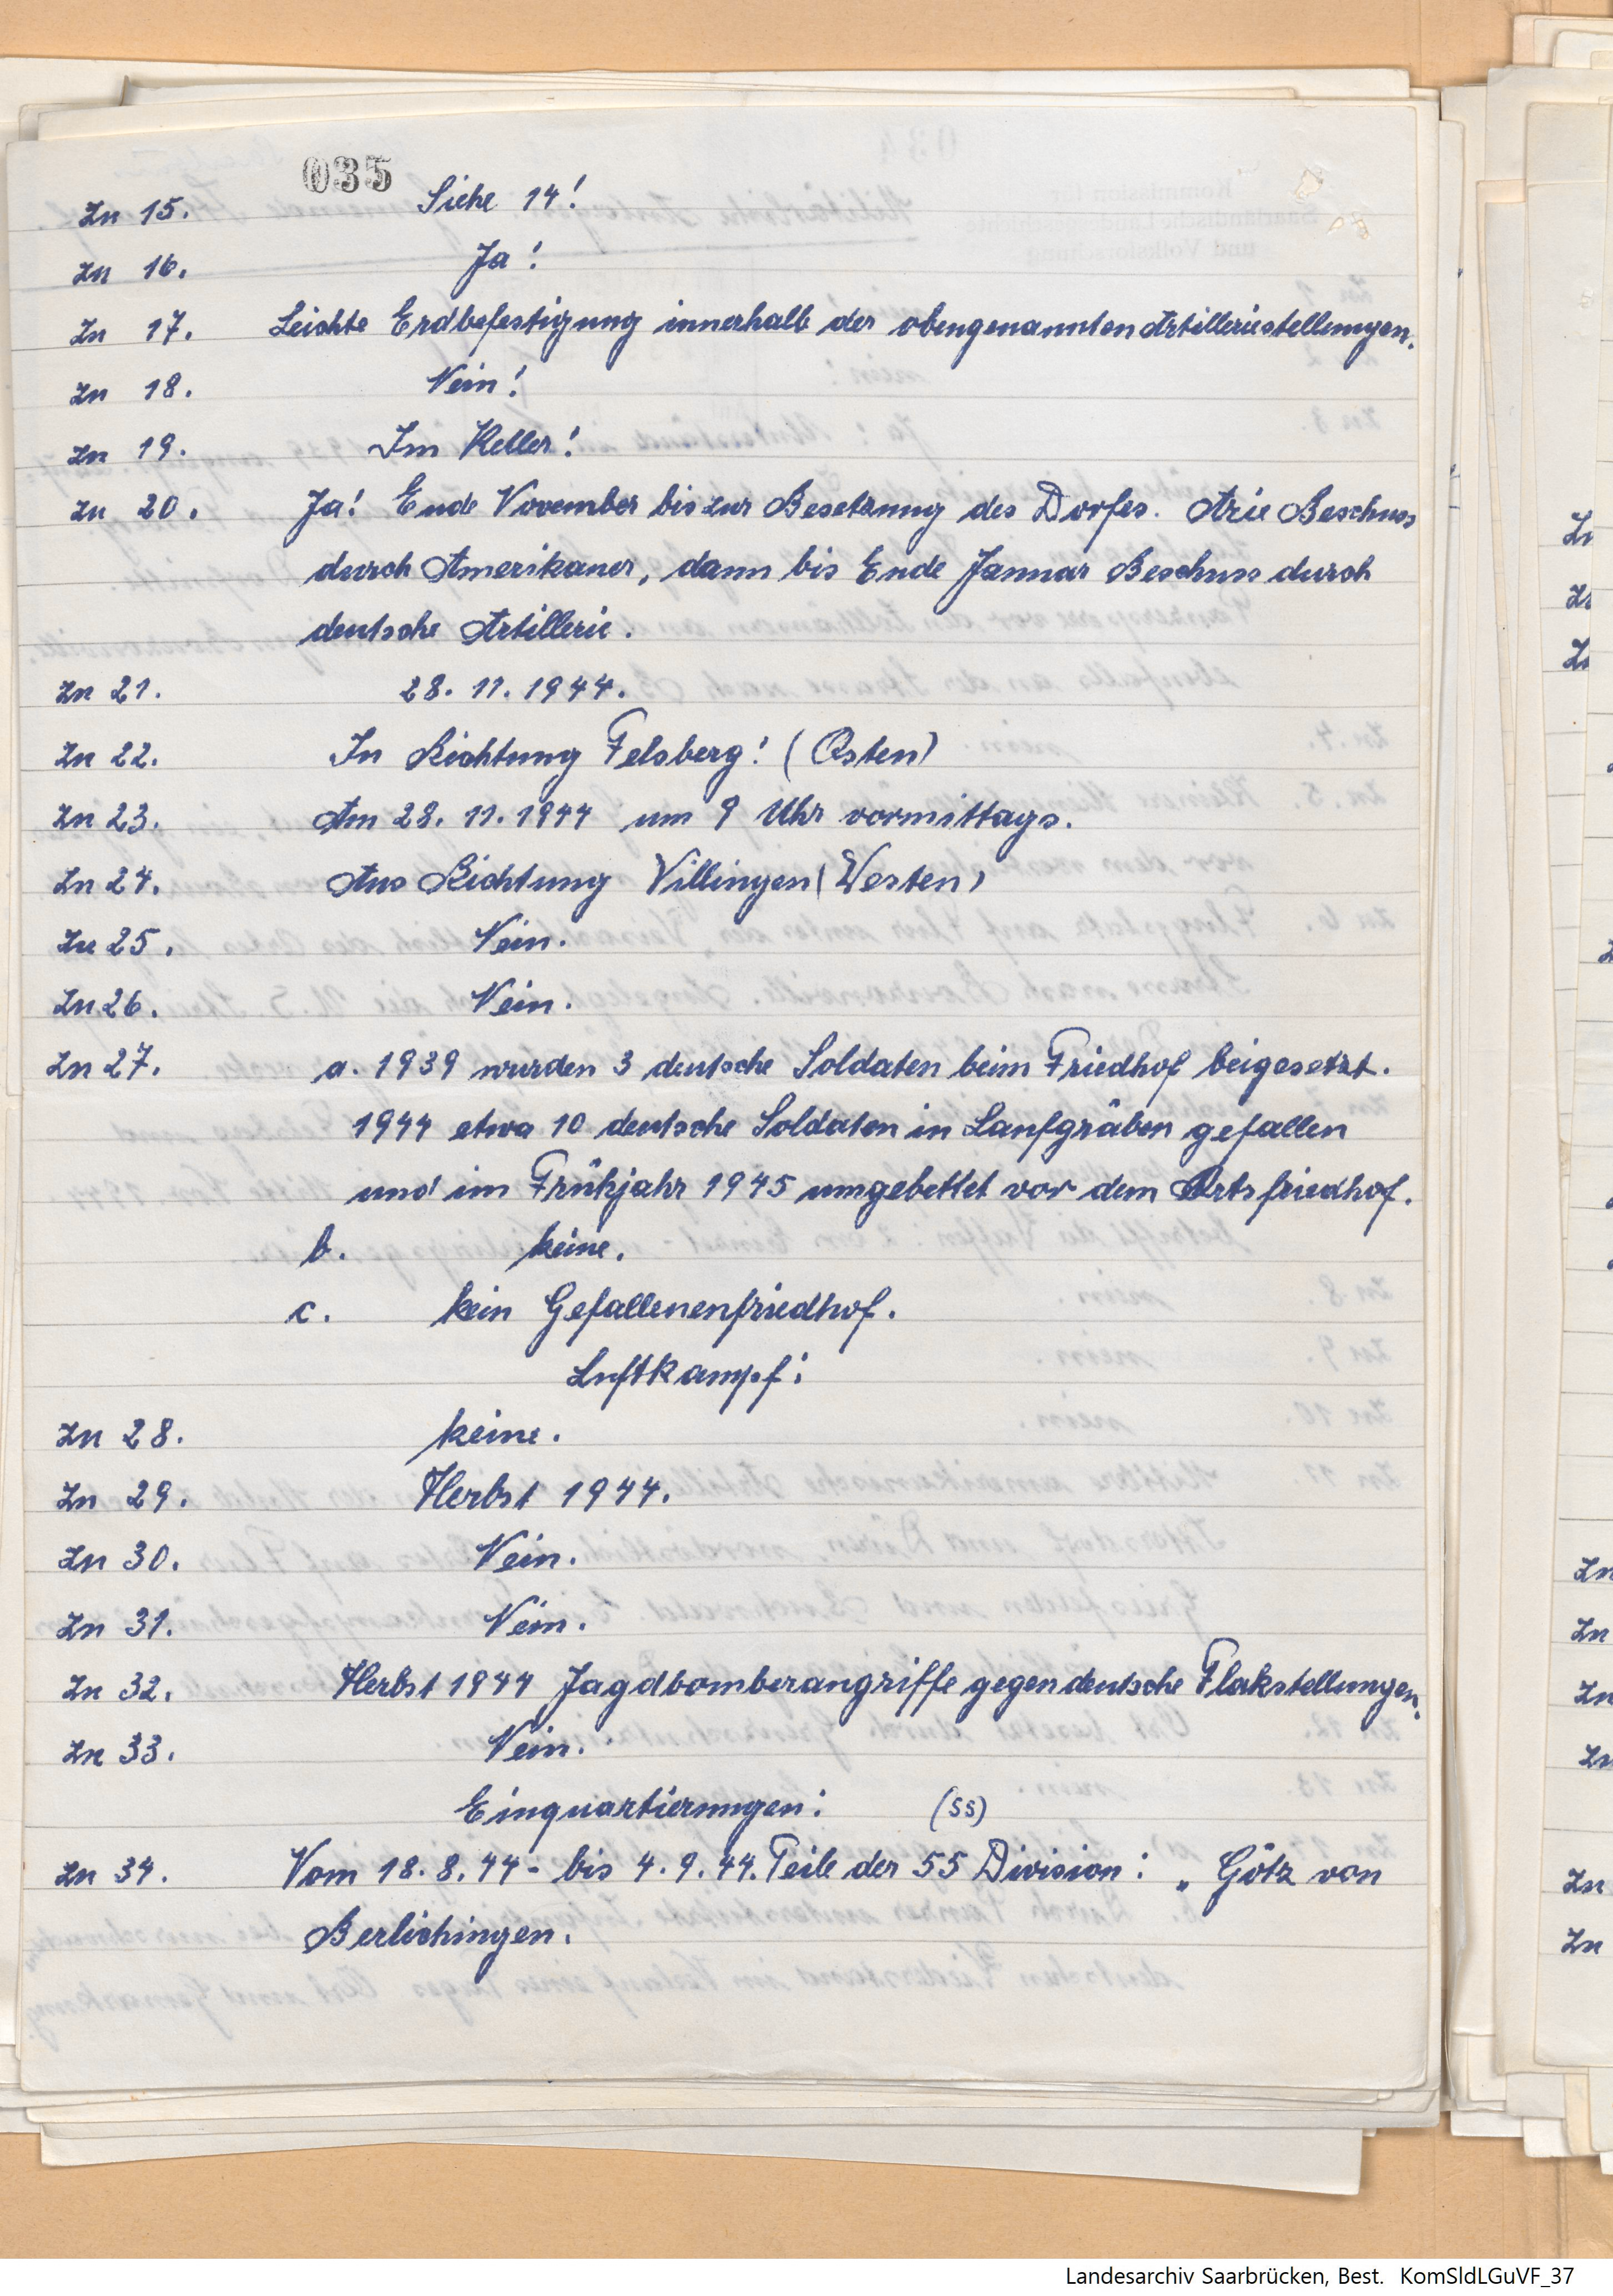 035
Zu 15. Siehe 14!
Zu 16. Ja!
Zu 17. Leichte Erdbefestigung innerhalb der obengenannten Artilleriestellungen.
Zu 18. Nein!
Zu 19. Im Keller!
Zu 20. Ja! Ende November bis zur Besetzung des Dorfes. Arie Beschuss
durch Amerikaner, dann bis Ende Januar Beschuss durch
deutsche Artillerie.
Zu 21. 28. 11. 1944.
Zu 22. In Richtung Felsberg! (Osten)
Zu 23. Am 28. 11. 1944 um 9 Uhr vormittags.
Zu 24. Aus Richtung Villingen (Westen)
Zu 25. Nein.
Zu 26. Nein.
Zu 27. a. 1939 wurden 3 deutsche Soldaten beim Friedhof beigesetzt.
1944 etwa 10 deutsche Soldaten in Laufgräben gefallen
und im Frühjahr 1945 umgebettet vor dem Ortsfriedhof.
b. keine.
c. kein Gefallenenfriedhof.
Luftkampf:
Zu 28. keine.
Zu 29. Herbst 1944.
Zu 30. Nein.
Zu 31. Nein.
Zu 32. Herbst 1944 Jagdbomberangriffe gegen deutsche Flakstellungen.
Zu 33. Nein.
Einquartierungen: (SS)
Zu 34. Vom 18. 8. 44 - bis 4. 9. 44. Teile der 55 Division: „Götz von
Berlichingen.
Landesarchiv Saarbrücken, Best. KomSldLGuVF_37